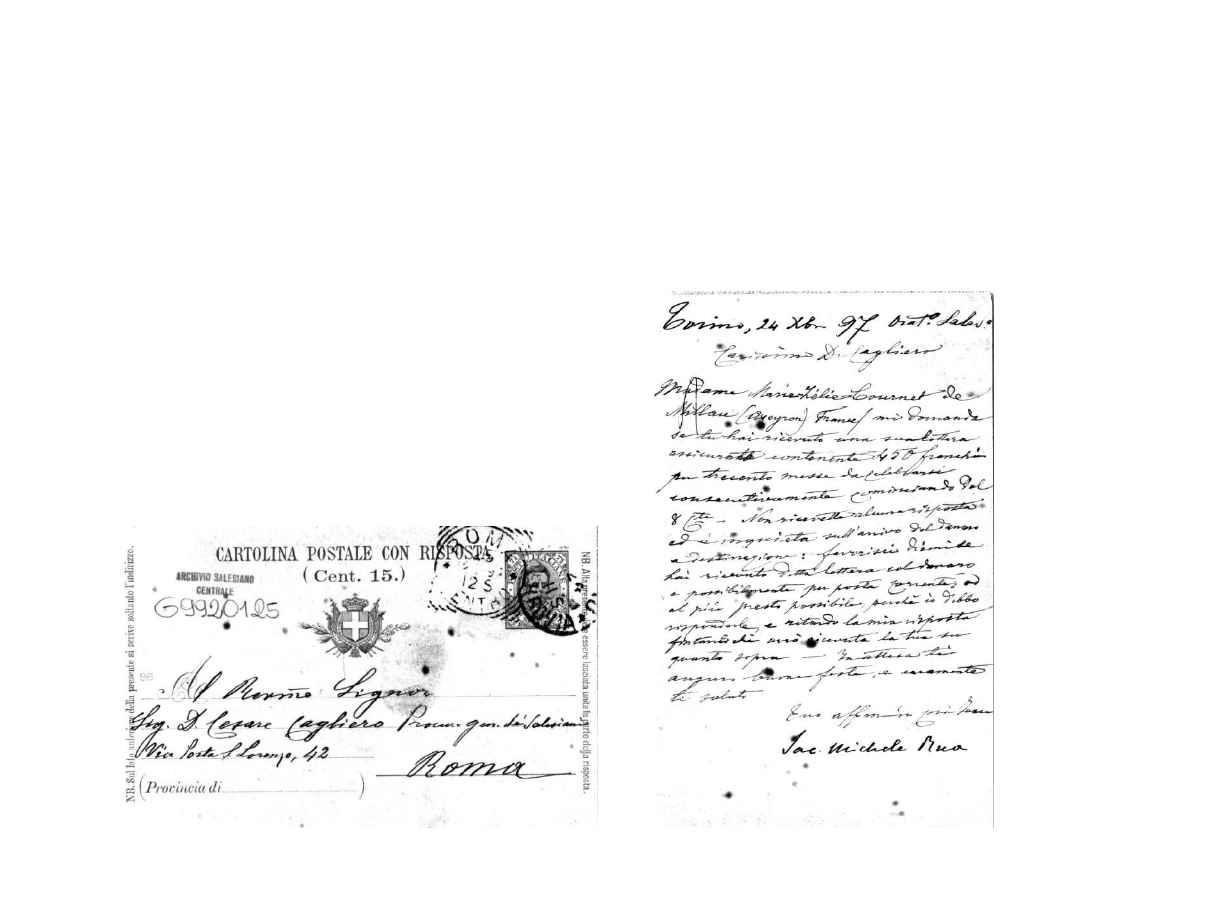 CARTOLINA POSTALE CON RISPOSTA
(Cent. 15.)
ARCHIVIO SALESIANO
CENTRALE
G9920125
ROMA
12 S
CENTRO
96
Al Revmo Signor
Sig. D. Cesare Cagliero Procur. gen. dei Salesiani
Via Porta S. Lorenzo, 42
Roma
(Provincia di )
NB. Sul lato anteriore della presente si scrive soltanto l'indirizzo.
NB. All'a essere lasciata unita la parte della risposta.
Torino, 24 Xbre 97 Orat.º Sales.º
Carissimo D. Cagliero
Madame Marie Zélie Cournet de
Millau (Aveyron) France/ mi domanda
se tu hai ricevuto una sua lettera
assicurata contenente 450 franchi
per trecento messe da celebrarsi
consecutivamente cominciando dal
8 - Non ricevette alcuna risposta
ed è inquieta sull'arrivo del danaro
a destinazione: favorisci dirmi se
hai ricevuto d.tta lettera col danaro
e possibilmente per posta corrente, od
al più presto possibile, perchè io debbo
risponderle, e ritardo la mia risposta
fintantochè avrò ricevuta la tua su
quanto sopra — In attesa ti
auguro buone feste, e caramente
ti saluto
Tuo affmo in
Sac. Michele Rua